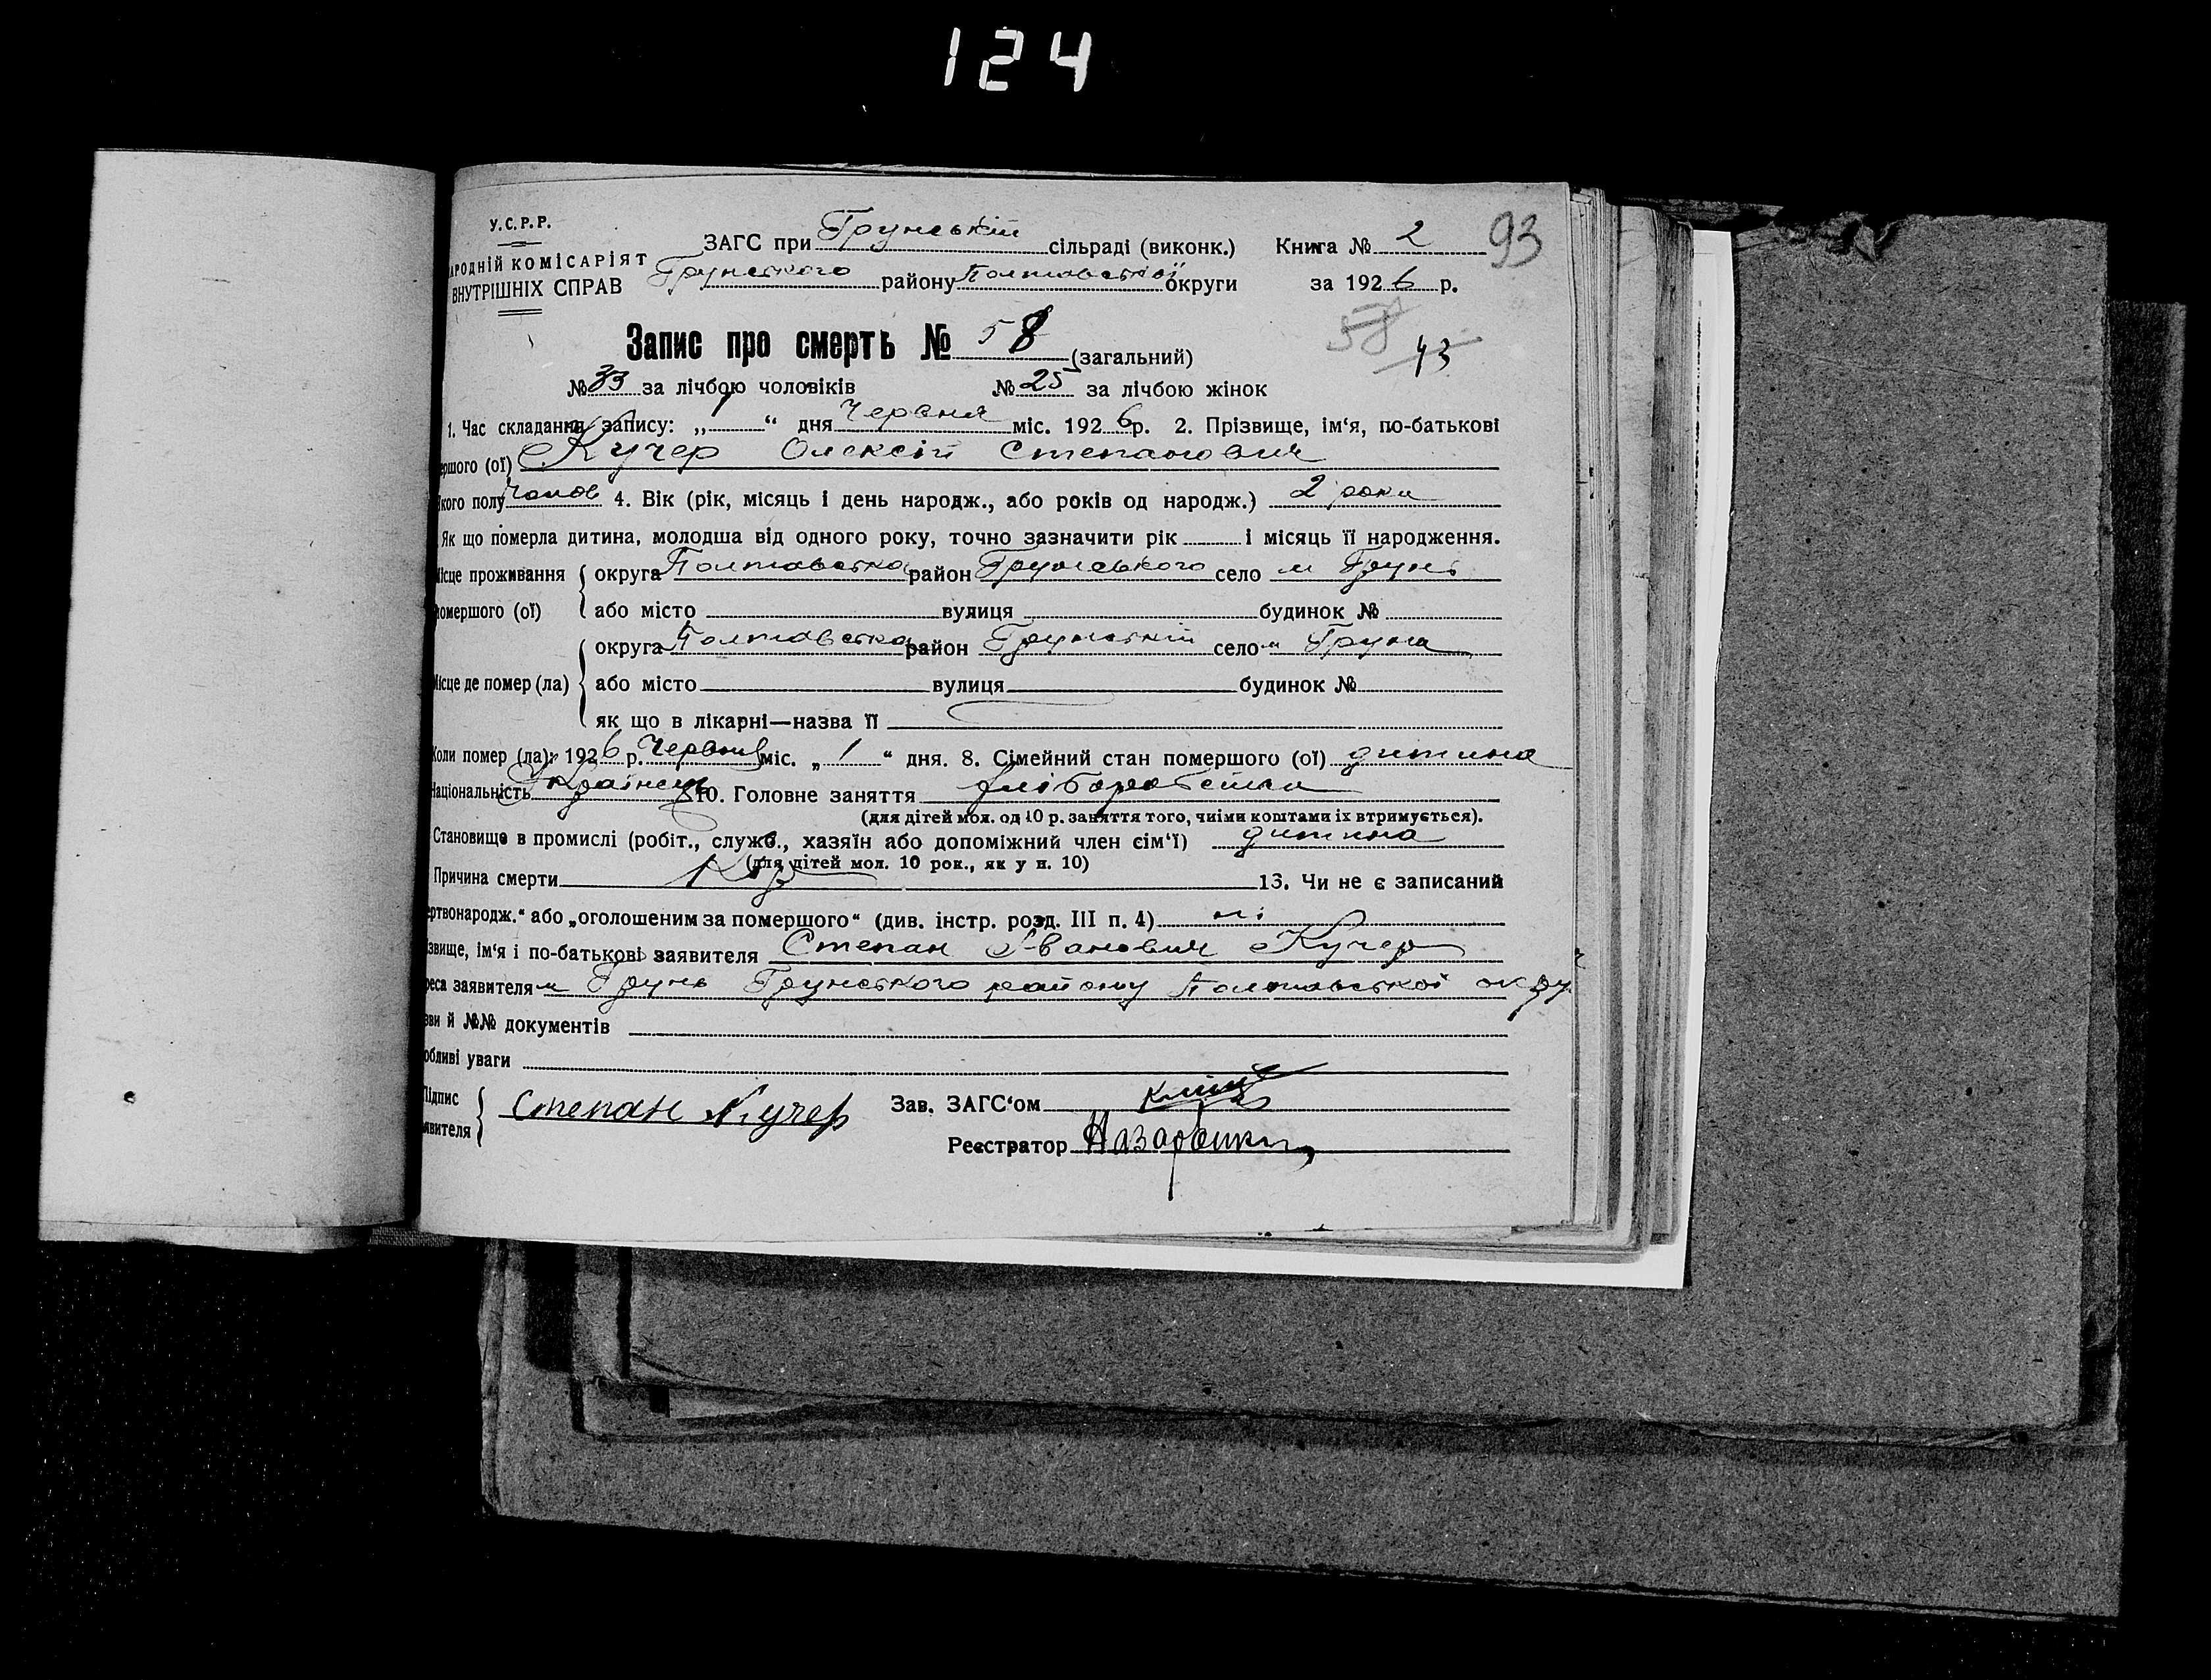 124
У.С.Р.Р.
ЗАГС при Грунській сільраді (виконк.) Книга № 2 93
АРОДНІЙ КОМІСАРІЯТ Грунського району Полтавської округи за 1926 р.
ВНУТРІШНІХ СПРАВ
Запис про смерть № 58 (загальний) 58 43
№ 33 за лічбою чоловіків № 25 за лічбою жінок
1. Час складання запису: „1“ дня Червня міс. 1926р. 2. Прізвище, ім‘я, по-батькові
ершого (ої) Кучер Олексій Степанович
якого полу чолов 4. Вік (рік, місяць і день народж., або років од народж.) 2 роки
Як що померла дитина, молодша від одного року, точно зазначити рік і місяць її народження.
Місце проживання округа Полтавська район Грунського село м Грунь
помершого (ої) або місто вулиця будинок №
округа Полтавська район Грунській село м Груня
Місце де помер (ла) або місто вулиця будинок №
як що в лікарні—назва її
Коли помер (ла): 1926 р. Червня міс. „1“ дня. 8. Сімейний стан помершого (ої) дитина
Національність Українець 10. Головне заняття
(для дітей мол. од 10 р. заняття того, чиїми коштами їх втримується).
Становище в промислі (робіт., служб., хазяїн або допоміжний член сім‘ї) дитина
(для дітей мол. 10 рок., як у н. 10)
Причина смерти Кір 13. Чи не є записаний
ертвонародж.“ або „оголошеним за помершого“ (див. інстр. розд. III п. 4) ні
звище, ім‘я і по-батькові заявителя Степан Іванович Кучер
реса заявителя м Грунь Грунського району Полтавської окру
зви й №№ документів
обливі уваги
Підпис Степан Кучер Зав. ЗАГС‘ом
явителя Реєстратор